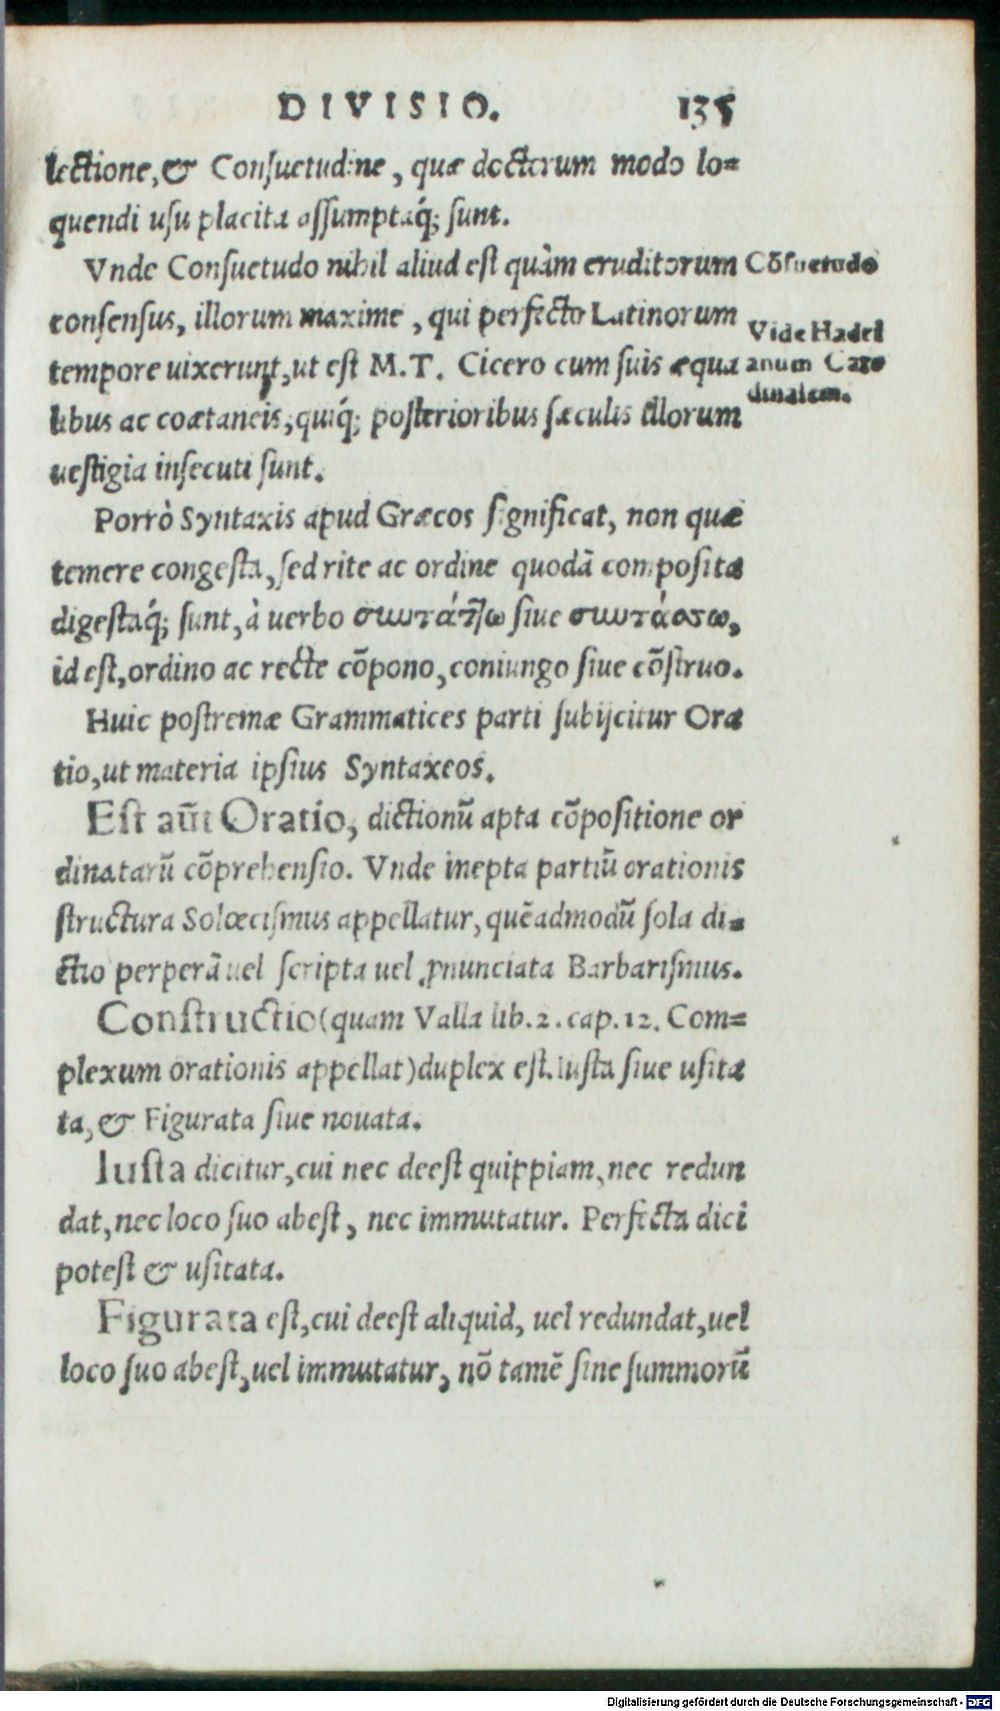 DIVISIO. 135
lectione, & Consuetudine, quæ doctorum modo lo=
quendi usu placita assumptaq́; sunt.
Vnde Consuetudo nihil aliud est quàm eruditorum
Cōsuetudo
consensus, illorum maxime, qui perfecto Latinorum
Vide Hadri
tempore uixerunt, ut est M.T. Cicero cum suis æqua
anum Car
dinalem.
libus ac coætaneis, quiq́; posterioribus sæculis illorum
uestigia insecuti sunt.
Porrò Syntaxis apud Græcos significat, non quæ
temere congesta, sed rite ac ordine quodā composita
digestaq́; sunt, à uerbo συντάτ]ω siue συντάσσω,
id est, ordino ac recte cōpono, coniungo siue cōstruo.
Huic postremæ Grammatices parti subijcitur Ora
tio, ut materia ipsius Syntaxeos.
Est aūt Oratio, dictionū apta cōpositione or
dinatarū cōprehensio. Vnde inepta partiū orationis
structura Solœcismus appellatur, quēadmodū sola di=
ctio perperā uel scripta uel ꝓnunciata Barbarismus.
Constructio (quam Valla lib.2. cap.12. Com=
plexum orationis appellat) duplex est. Iusta siue usita
ta, & Figurata siue nouata.
Iusta dicitur, cui nec deest quippiam, nec redun
dat, nec loco suo abest, nec immutatur. Perfecta dici
potest & usitata.
Figurata est, cui deest aliquid, uel redundat, uel
loco suo abest, uel immutatur, nō tamē sine summorū
Digitalisierung gefördert durch die Deutsche Forschungsgemeinschaft - DFG